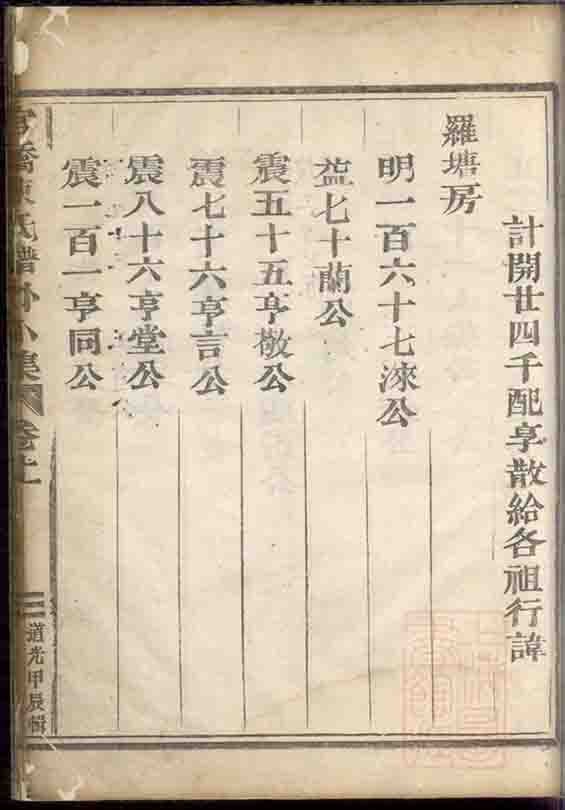 計開廿四千配享散給各祖行諱
羅塘房
明一百六十七淶公
益七十蘭公
震五十五亨敬公
震七十六亨言公
震八十六亨堂公
震一百一亨同公
氏譜 集 卷上
道光甲辰輯